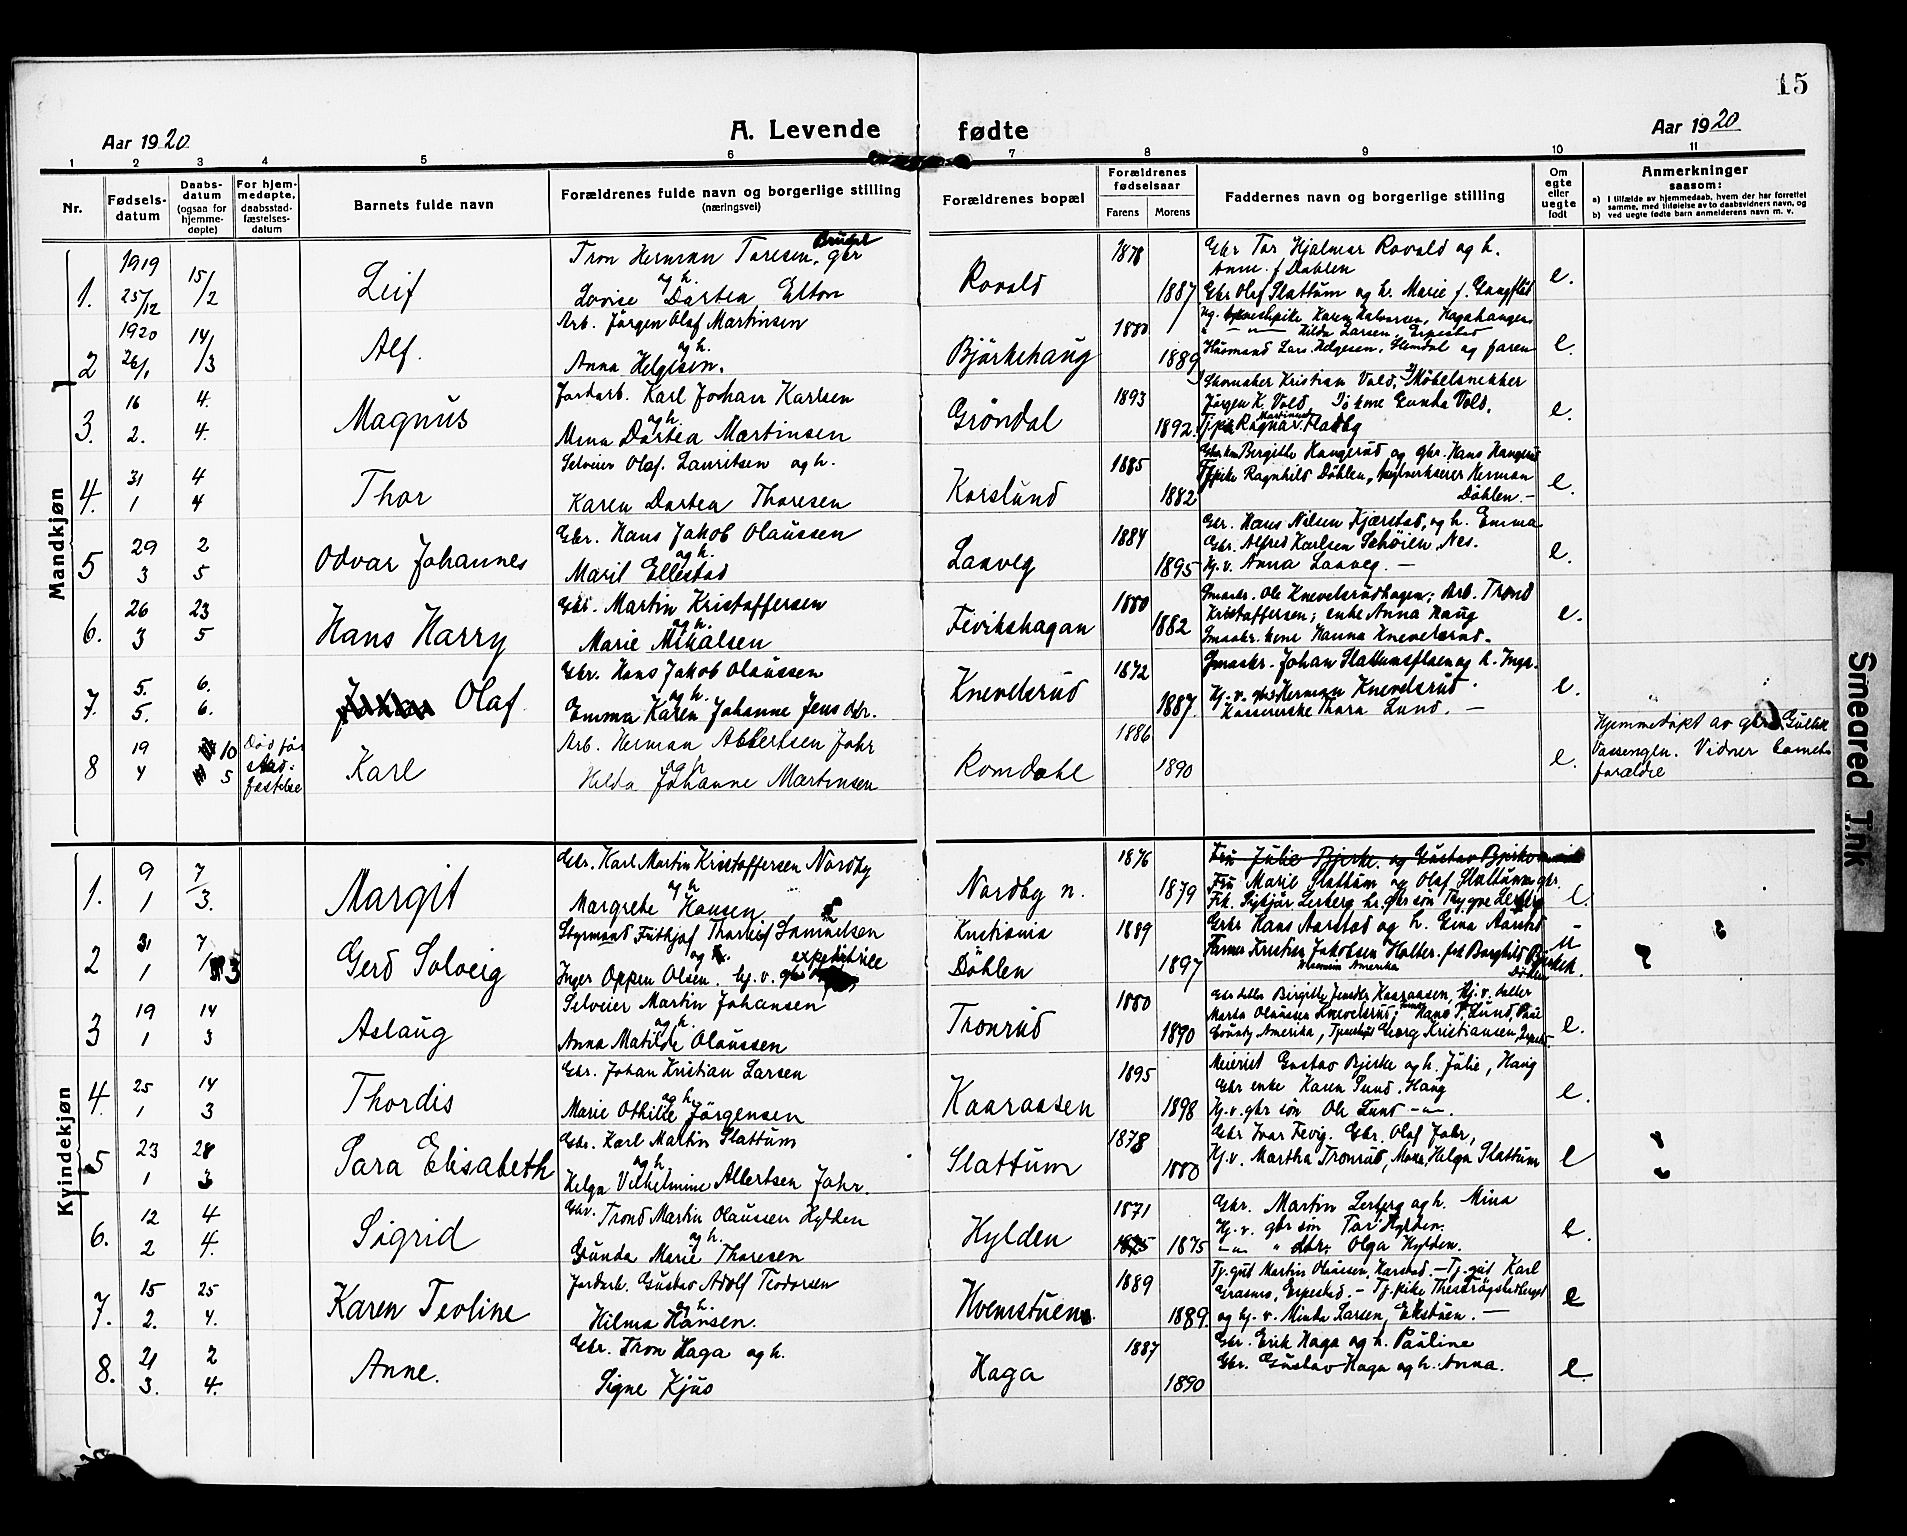 15
Aar 1920
A. Levende fødte
Aar 1920
1 2 3 4 5 6 7 8 9 10 11
Nr.
Fødsels-
datum
Daabs-
datum
(ogsaa for
hjemme-
døpte)
For hjem-
medøpte,
daabsstad-
fæstelses-
datum
Barnets fulde navn
Forældrenes fulde navn og borgerlige stilling
(næringsvei)
Forældrenes bopæl
Forældrenes
fødselsaar
Farens Morens
Faddernes navn og borgerlige stilling
Om
egte
eller
uegte
født
Anmerkninger
saasom:
a) I tilfælde av hjemmedaab, hvem der har forrettet
samme, med tilføielse av to daabsvidners navn, og
b) ved uegte fødte barn anmelderens navn m. v.
Mandkjøn
1. 1919 25/12 15/2 Leif
Tron Herman Toresen, gbr
og h.
Lovise Dortea Elton
Rovald 1878 1887
Gbr Tor Hjalmar Rovald og h.
Anne f. Døhlen
Gbr Olaf Slattum og h. Marie f.
e.
2 1920 26/1 14/3 Alf.
Arb. Jørgen Olaf Martinsen
og h.
Anna Helgesen.
Bjørkehaug 1880 1889
Hilda Larsen,
Husmand Lars Helgesen, og faren
e.
3. 16 2. 4. 4. Magnus
Jordarb. Karl Johan Karlsen
og h.
Mina Dortea Martinsen
Grøndal 1893 1892.
Skomaker Kristian Vold, Møbelsnekker
Jørgen K. Vold kone Gunda Vold.
e.
4. 31 1 4 4 Thor
Selveier Olaf Lauritsen og h.
Karen Dortea Thoresen
Korslund 1885 1882
Bergitte Haugerud og gbr. Hans Haugerud
Ragnhild Døhlen, Herman
Døhlen. –
e.
5 29 3 2 5 Odvar Johannes
Gbr. Hans Jakob Olaussen
og h.
Marit Ellestad
Laaveg 1884 1895
Gbr. Hans Nilsen Kjærstad, og h. Emma
Gbr. Alfred Karlsen Schøien, Nes.
Hj. v. Anna Laaveg. –
e.
6. 26 3 23 5 Hans Harry
Gbr. Martin Kristoffersen
og h.
Marie Mikalsen
Fevikshagan 1880 1882
Smaabr. Ole Knevelsrudhagen; Arb. Trond
Kristoffersen; enke Anna Haug
Smaabr. kone Hanna Knevelsrud.
e.
7. 5. 5. 6. 6. Olaf
Gbr. Hans Jakob Olaussen
og h.
Emma Karen Johanne Jens dtr.
Knevelsrud 1872 1887.
Smaabr. Johan Slattumsflaen og h. Inga.
Hj. v. gbr Herman Knevelsrud.
Thora Lund. –
e.
8 19 4 10 5 Død før
stad-
fæstelse
Karl
Arb. Herman Albertsen Johr
og h
Hilda Johanne Martinsen
Romdahl 1886 1890
e.
Hjemmedøpt av gbr Gullik
Vassengen. Vidner barnets
forældre
Kvindekjøn
1. 9 1 7 3. Margit
Gbr. Karl Martin Kristoffersen Nordby
og h
Margrete Hansen
Nordby n. 1876 1879
Fru Julie Bjerke og Gustav Bjerke
Fru Marie Slattum og Olaf Slattum gbr.
Frk. Sigbjør Lerberg, gbr søn Trygve Lerberg
e.
2 31 1 7 3 Gerd Solveig
Styrmand Fritjof Thorleif Samuelsen
og
Inger Oppen Olsen. hj. v. expeditrice
Kristiania
Døhlen 1889 1897
Gbr Hans Aarstad og h. Gina Aarstad
Farmer Kristian Jakobsen Holter. Borghild Bjerke
Amerika Døhlen
u
3 19 1 14 3 Aslaug
Selveier Martin Johansen
og h.
Anna Matilde Olaussen
Tronrud 1880 1890
Marta Olaussen Knevelsrud; Hans T. Lund,
County Amerika, Georg Kristiansen,
e.
4. 25 1 14 3 Thordis
Gbr. Johan Kristian Larsen
og h.
Marie Othilie Jørgensen
Kaaraasen 1895 1898
Meieriet Gustav Bjerke og h. Julie, Haug
Gbr enke Karen Lund, Haug
Hj. v. gbr søn Ole Lund –"–.
e.
5 23 1 28 3 Sara Elisabeth
Gbr. Karl Martin Slattum
og h
Helga Vilhelmine Albertsen Johr.
Slattum 1878 1880
Gbr Ivar Fevig. Gbr. Olaf Johr,
Hj. v. Martha Tronrud, Helga Slattum
e
6. 12 2 4 4. Sigrid
Gbr. Trond Martin Olaussen Hylden
og h.
Gunda Marie Thoresen
Hylden 1871 1875 1875
Gbr. Martin Lerberg og h. Mina
Hj. v. gbr søn Tor Hylden.
–"– " dtr. Olga Hylden.
e.
7. 15 2. 25 4. Karen Teoline
Jordarb. Gustav Adolf Teodorsen
og h.
Hilma Hansen.
Hvemstuen. 1889 1889.
Tj. gut Martin Olaussen, Korstad. – Tj. gut Karl
og hj. v. Minda Larsen, Ekstuen. –
e
8. 21 3. 2 4. Anne.
Gbr. Tron Haga og h.
Signe Kjus
Haga 1887 1890
Gbr. Erik Haga og h. Pauline
Gbr. Gustav Haga og h. Anna.
e.
Smeared Ink